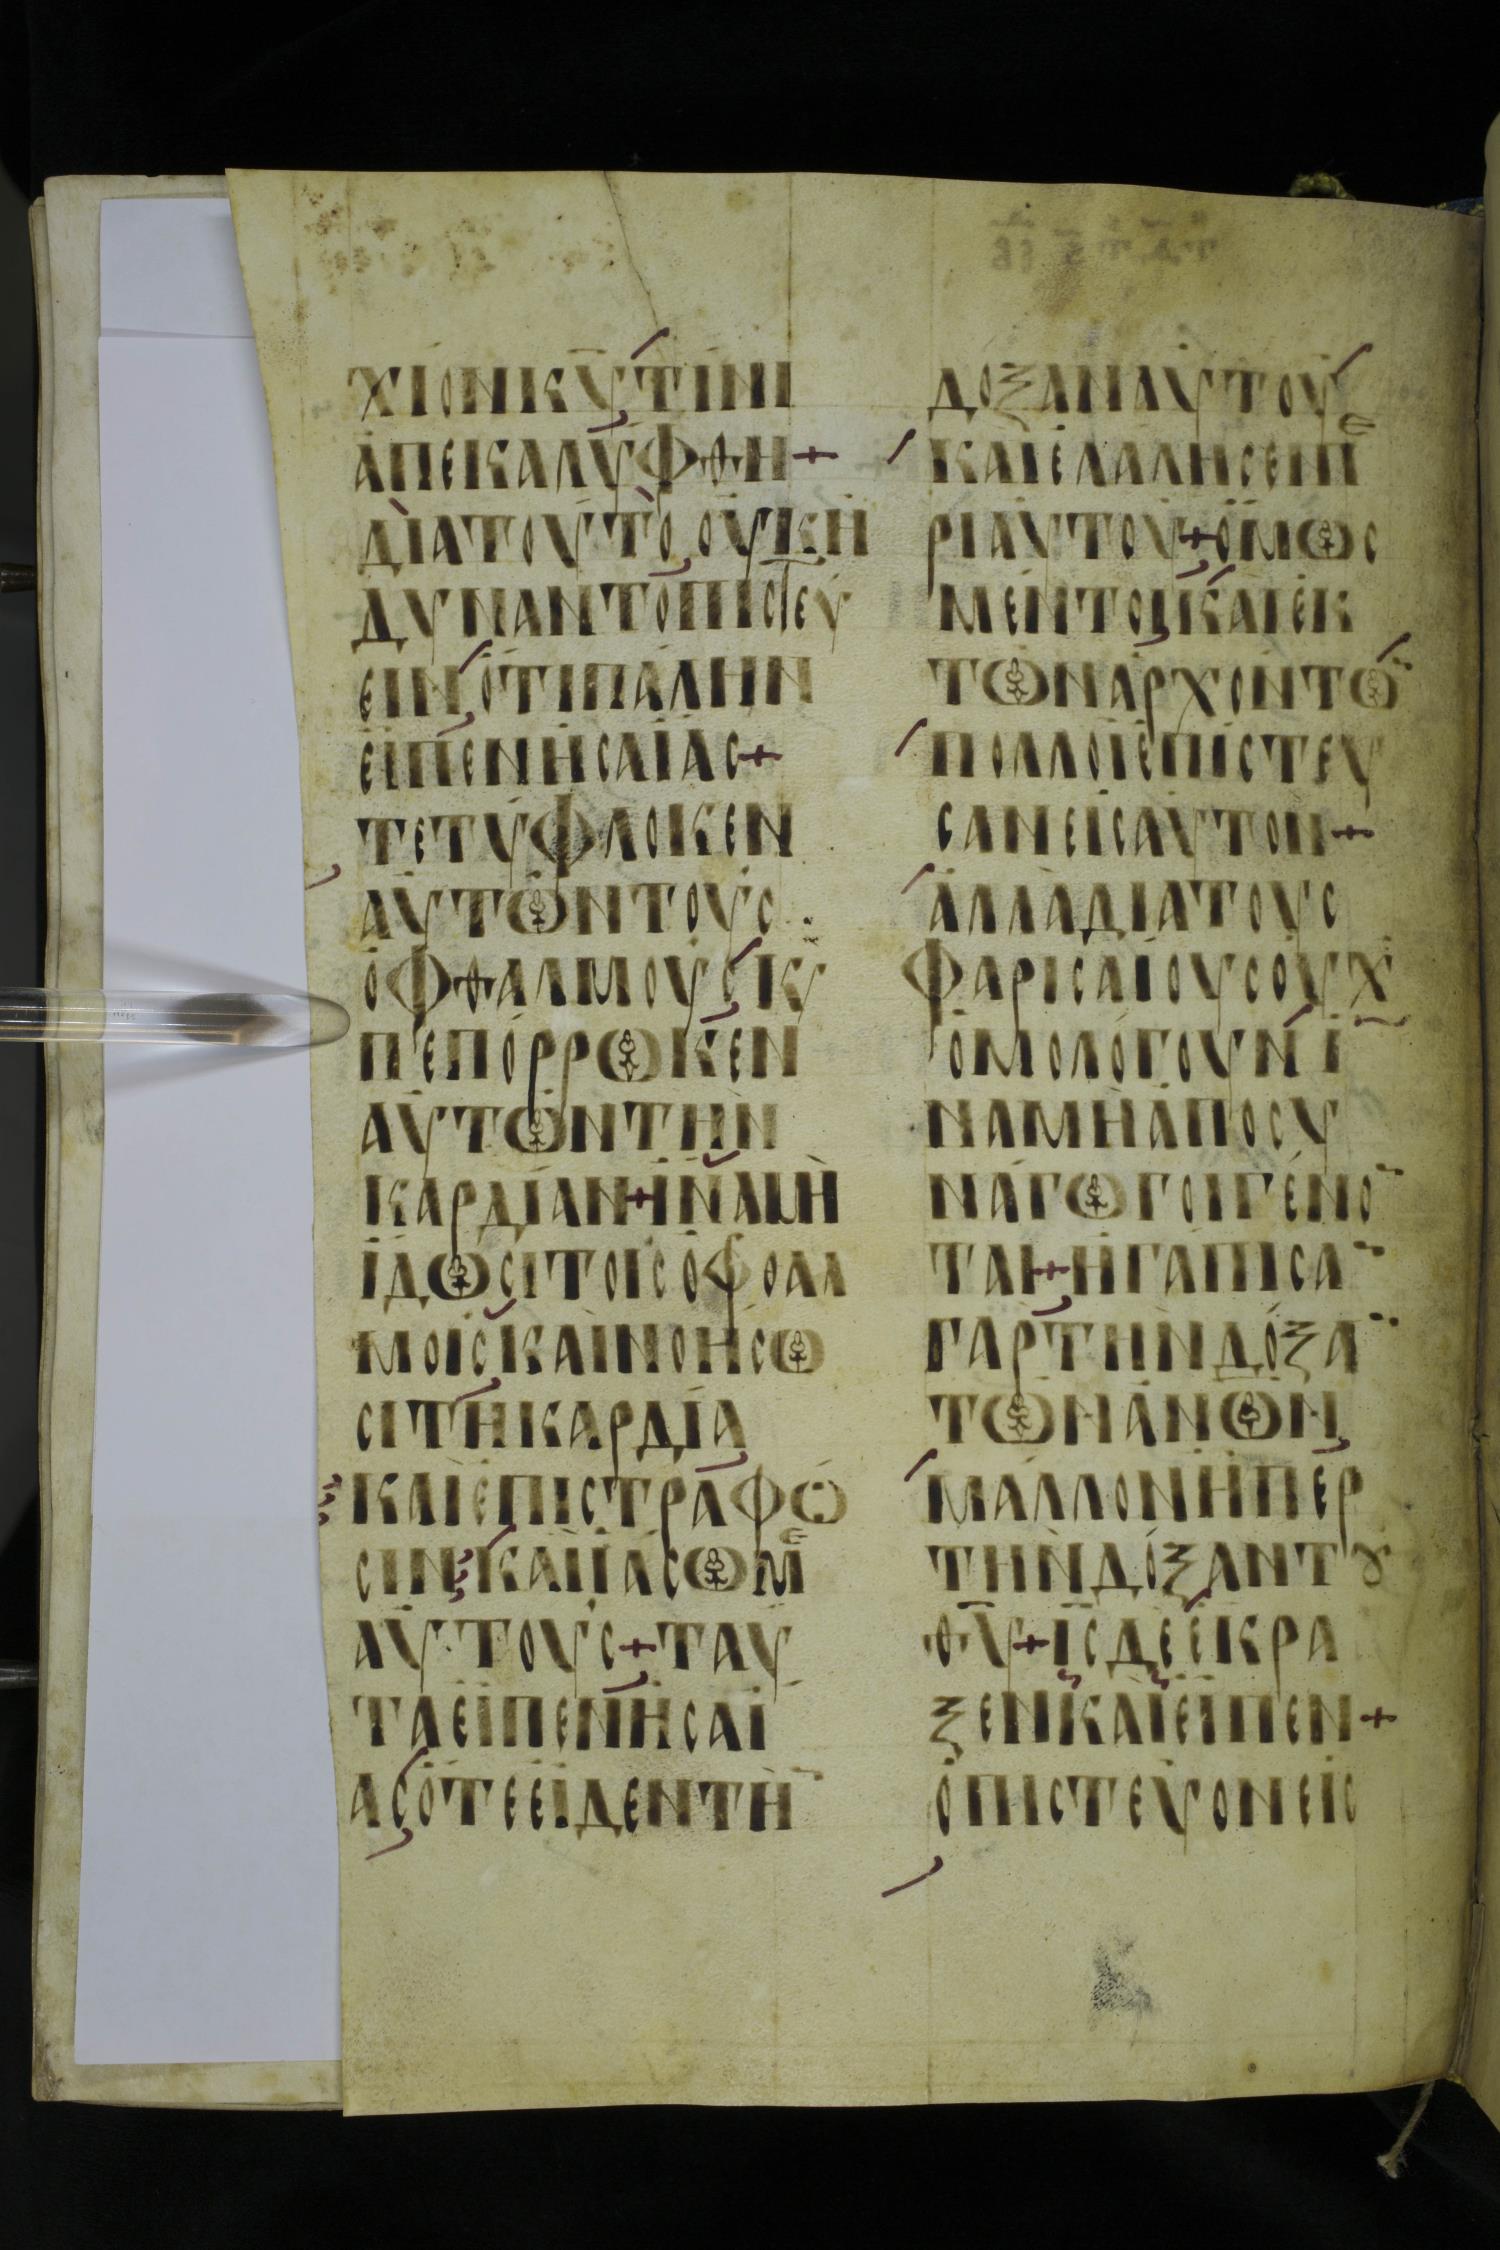 ΧΙΟΝΚΥ̅ΤΙΝΙ
ΑΠΕΚΑΛΥΦΘΗ+
ΔΙΑΤΟΥΤΟΟΥΚΗ
ΔΥΝΑΝΤΟΠΙСΤΕΥ
ΕΙΝΟΤΙΠΑΛΗΝ
ΕΙΠΕΝΗСΑΙΑС+
ΤΕΤΥΦΛΟΚΕΝ
ΑΥΤΩΝΤΟΥС
ΟΦΘΑΛΜΟΥСΚ
ΠΕΠΟΡΡΩΚΕΝ
ΑΥΤΩΝΤΗΝ
ΚΑΡΔΙΑΝ+ΙΝΑΜΗ
ΙΔΩСΙΤΟΙСΟΦΘΑΛ
ΜΟΙСΚΑΙΝΟΗСΩ
СΙΤΗΚΑΡΔΙΑ
ΚΑΙΕΠΙСΤΡΑΦΩ
СΙΝΚΑΙΙΑСΩΜΕ
ΑΥΤΟΥС+ΤΑΥ
ΤΑΕΙΠΕΝΗСΑΙ
ΑСΟΤΕΕΙΔΕΝΤΗ̅
ΔΟΞΑΝΑΥΤΟΥ
ΚΑΙΕΛΑΛΗСΕΝΠΕ
ΡΙΑΥΤΟΥ+ΟΜΩС
ΜΕΝΤΟΙΚΑΙΕΚ
ΤΩΝΑΡΧΟΝΤΩ̅
ΠΟΛΛΟΙΕΠΙСΤΕΥ
СΑΝΕΙСΑΥΤΟΝ+
ΑΛΛΑΔΙΑΤΟΥС
ΦΑΡΙСΑΙΟΥСΟΥΧ
ΟΜΟΛΟΓΟΥΝΙ
ΝΑΜΗΑΠΟСΥ
ΝΑΓΩΓΟΙΓΕΝΟ̅
ΤΑΙ+ΗΓΑΠΙСΑ̅
ΓΑΡΤΗΝΔΟΞΑ̅
ΤΩΝΑΝΩΝ
ΜΑΛΛΟΝΗΠΕΡ
ΤΗΝΔΟΞΑΝΤȢ
Θ̅Υ̅+Ι̅С̅ΔΕΕΚΡΑ
ΞΕΝΚΑΙΕΙΠΕΝ+
ΟΠΙСΤΕΥΟΝΕΙС